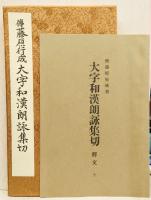 傳藤原行成大字和漢朗詠集切
傳藤原行成筆
大字和漢朗詠集切
釋文